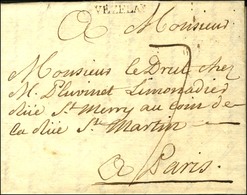 VEZELAY
A Monsieur
Monsieur le Drut chez
Mr. Pluvinet Limonadier
Rüe St. Merry au coin de
la Rüe St. Martin
A Paris.